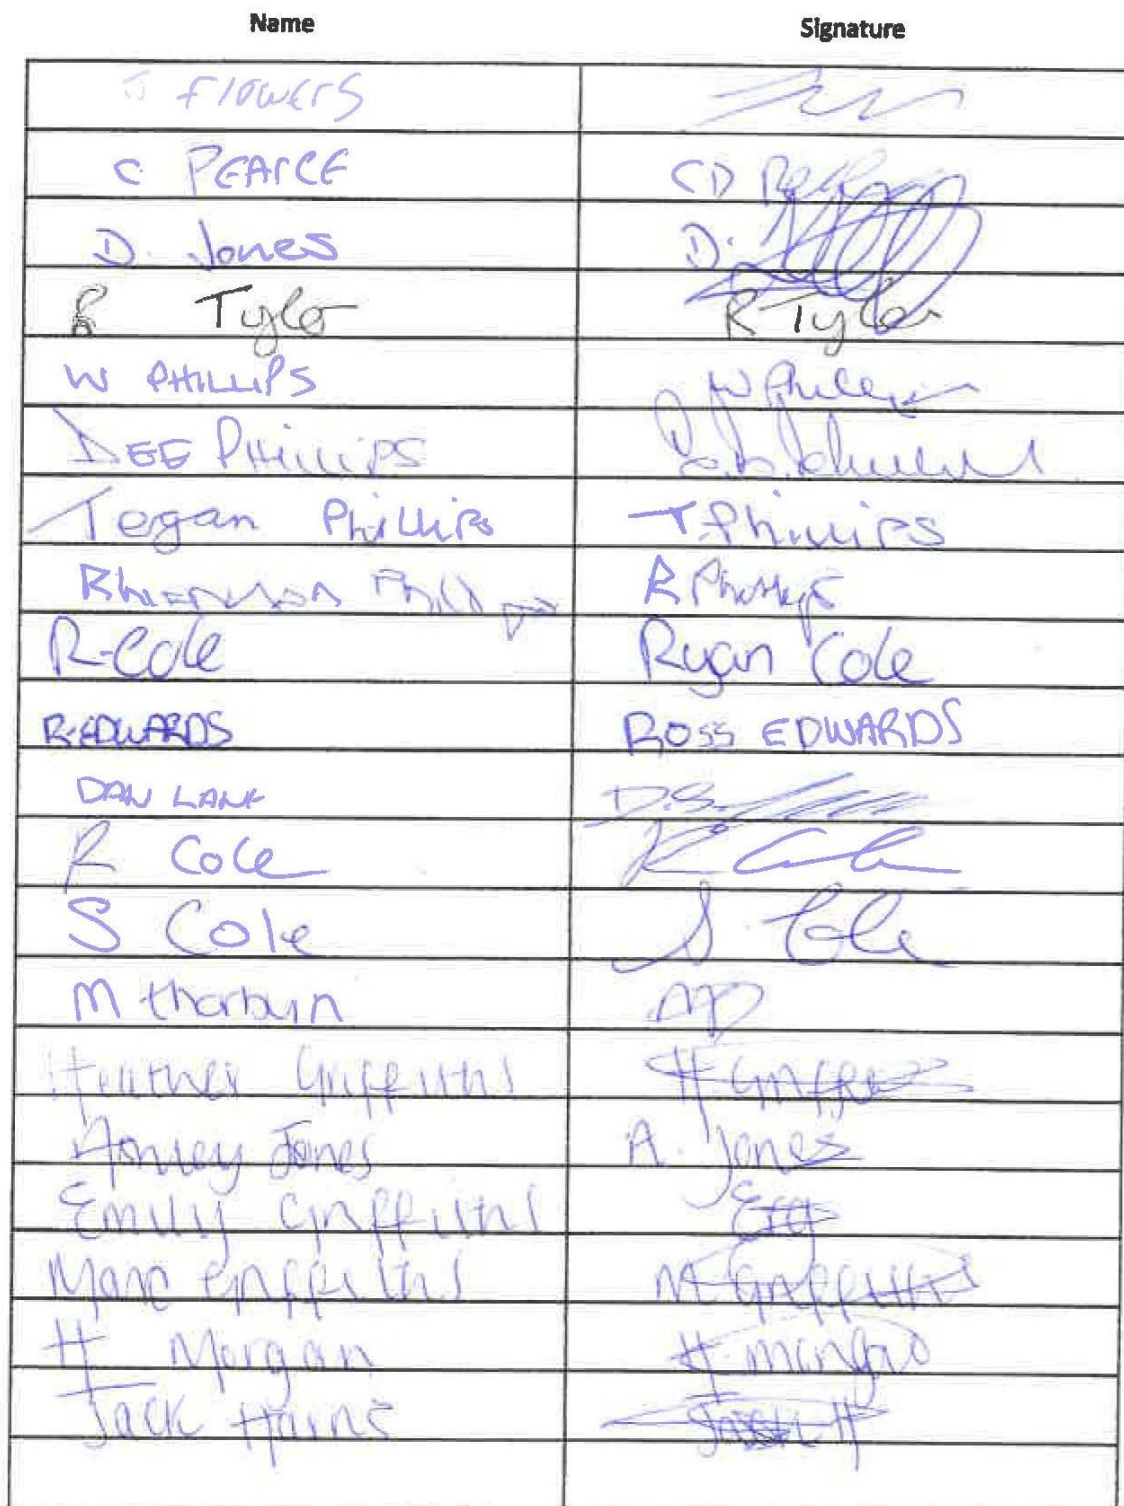 Name Signature
J Flowers
C PEARCE CD
D. Jones D.
R Tyler R Tyler
W PHILLIPS W
DEE PHILLIPS
Tegan Phillips T. Phillips
Rhiannon Phillips R Phillips
R-Cole Ryan Cole
R-EDWARDS ROSS EDWARDS
DAN LANE D.S.
R Cole R
S Cole S. Cole
M thorbyn
Heather Griffiths H Griff
Jones A. Jones
Emily Griffiths EG
Marc Griffiths M Griffiths
H Morgan H
Jack Harris Jack H